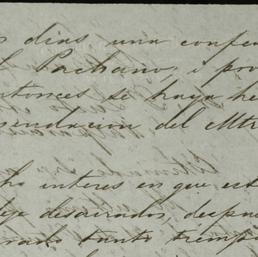 s dias, una confe
l Pachano, i por
ntonces se haya he
endacion del Mtr
ho interes en que est
deje desairados, despu
rado tanto tiempo